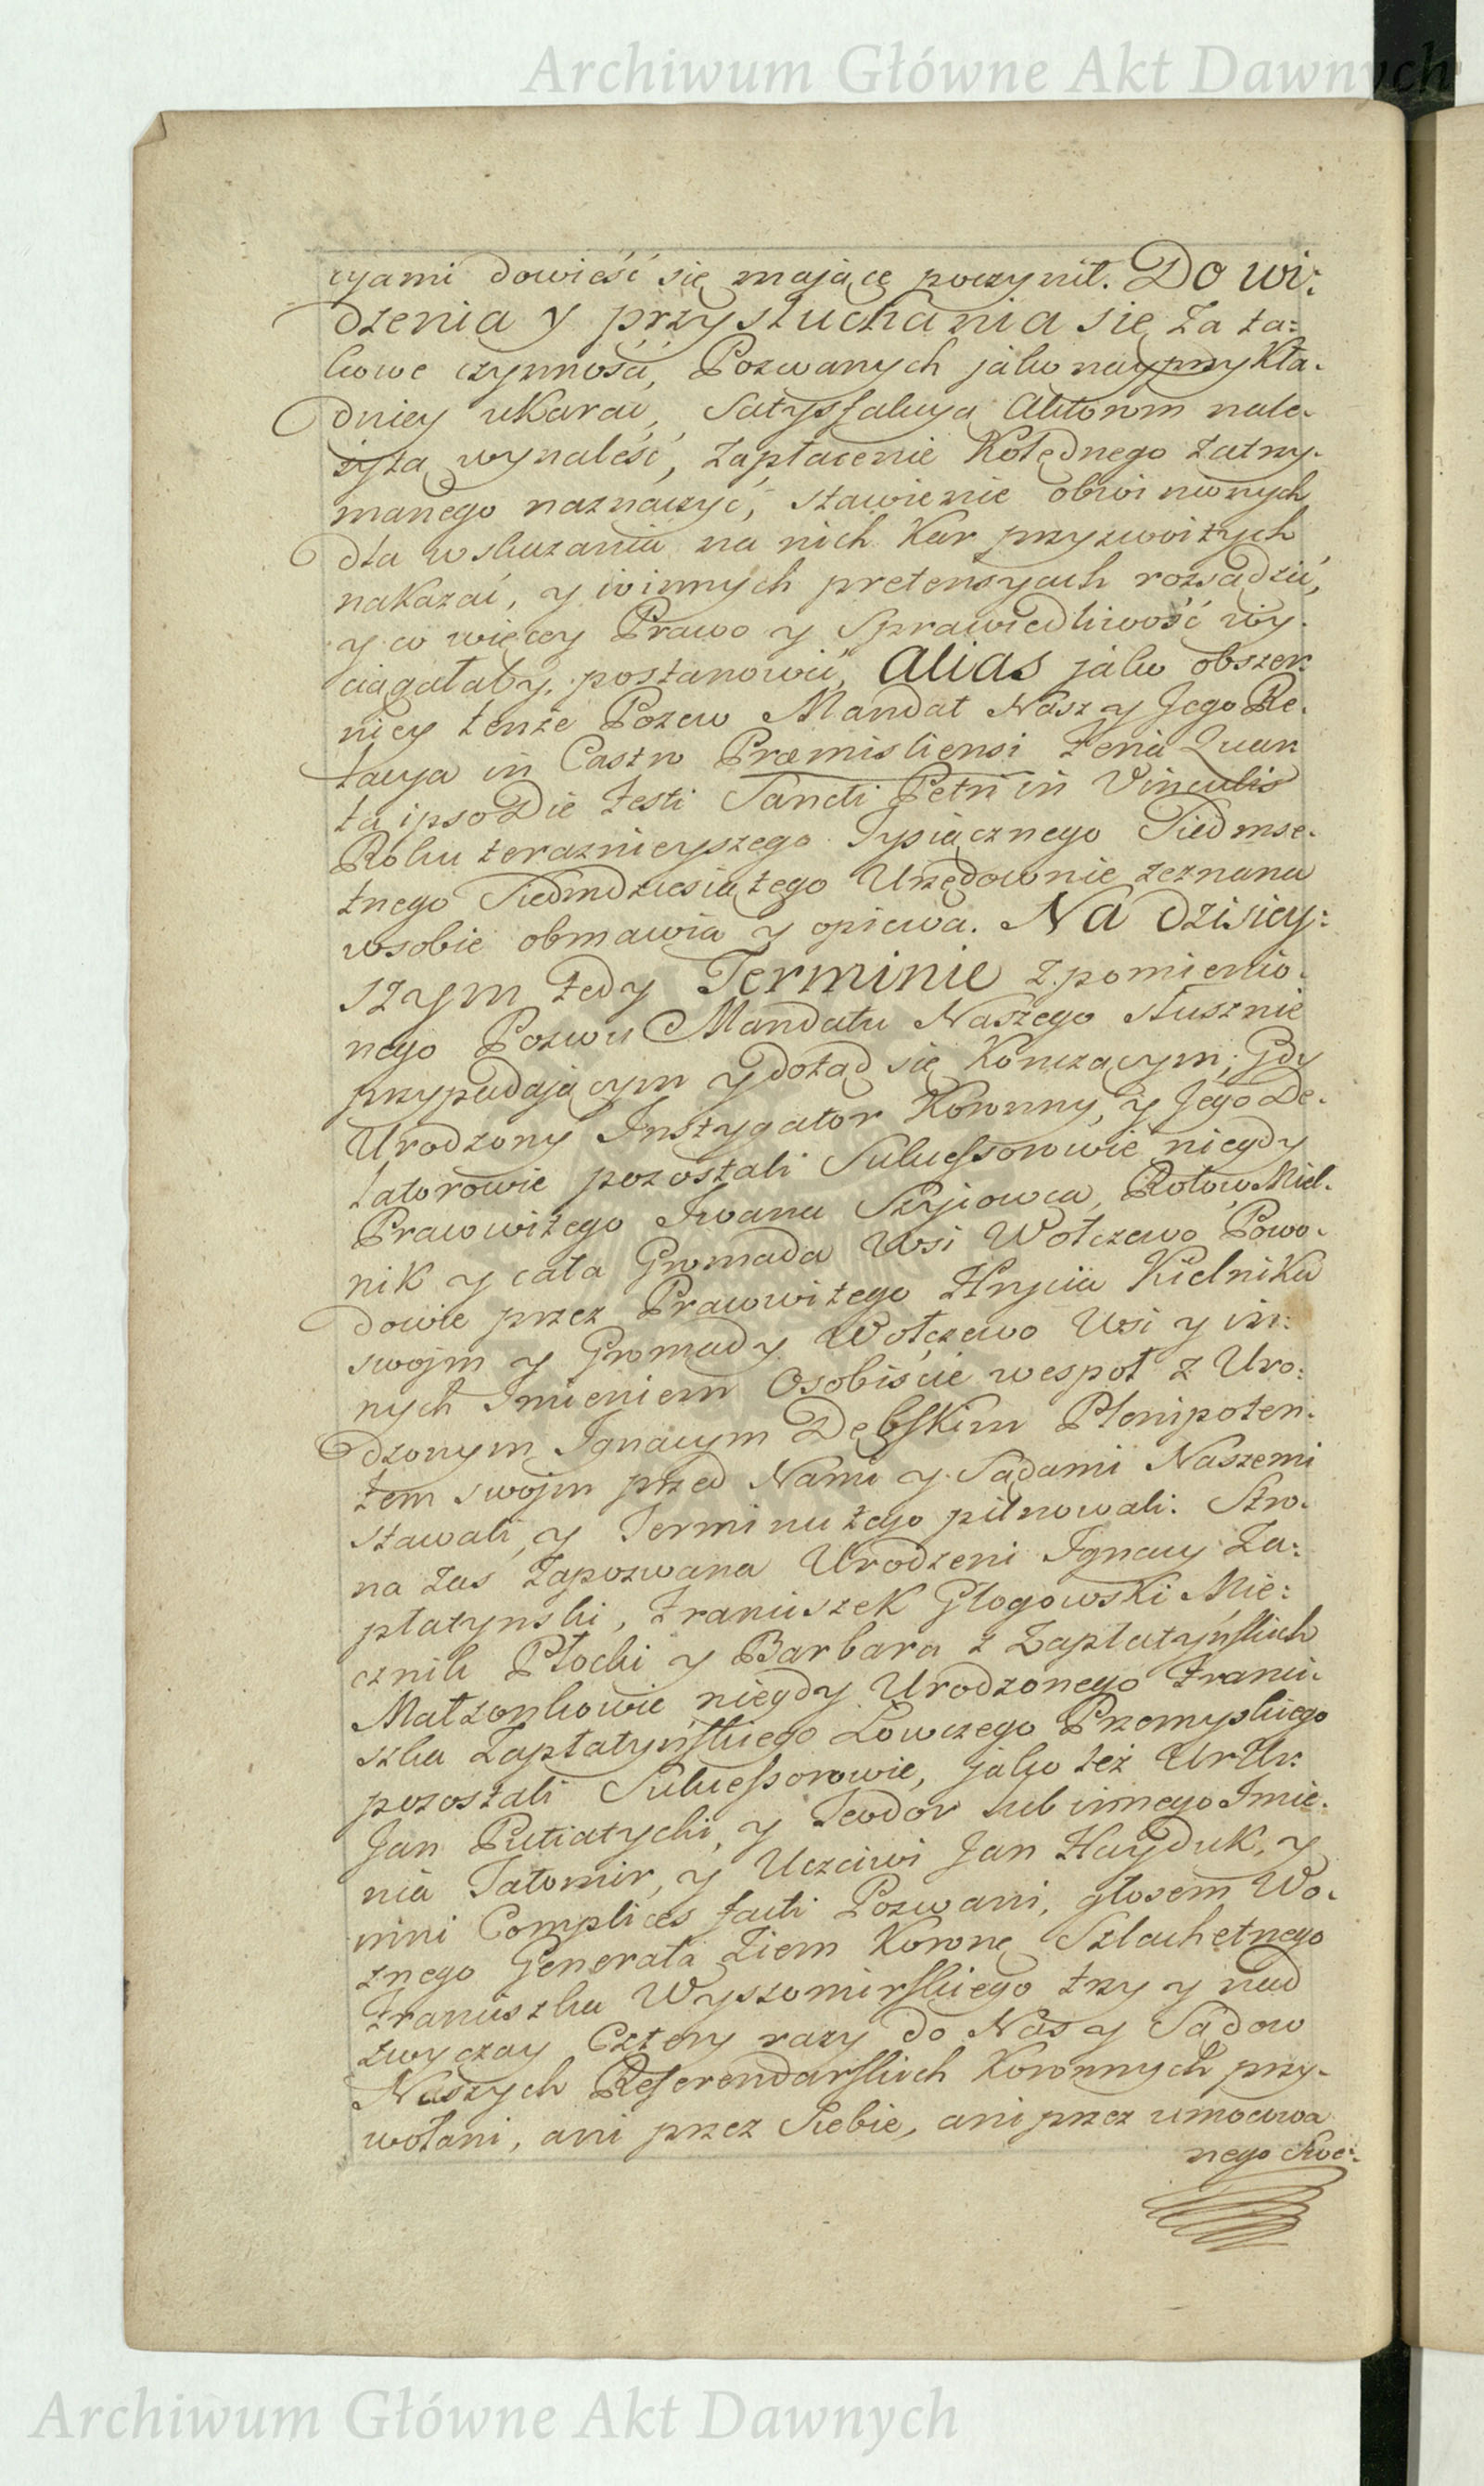 Archiwum Główne Akt Dawnych
cyami dowieść się mające poczynił. Do wi:
dzenia y przysłuchania się za ta:
kowe czynności, Pozwanych jako nayprzykła.
dniey ukarać, Satysfakcyą Aktorom nale.
żytą wynaleść, Zapłacenie Kolędnego zatrzy.
manego naznaczyć, stawienie obwinionych
dla wskazania na nich Kar przyzwoitych
nakazać, y winnych pretensyach rozsądzić,
y co więcey Prawo y Sprawiedliwość wy.
ciągałaby, postanowić, Alias jako obszer
niey tenże Pozew Mandat Nasz y Jego Re.
lacya in Castro Præmisliensi Feria Quar
ta ipso Die Festi Sancti Petri in Vinculis
Roku teraznieyszego Tysiącznego Siedmse.
tnego Siedmdziesiątego Urzędownie zeznana
wsobie obmawia y opiewa. Na dzisiey:
szym tedy Terminie z pomienio.
nego Pozwu Mandatu Naszego słusznie
przypadającym y dotąd się Konczącym; Gdy
Urodzony Instygator Koronny, y Jego De.
latorowie pozostali Sukcessorowie niegdy
Prawowitego Iwana Szyiowca, Rotow Miel.
nik y cała Gromada Wsi Wołczewo Powo.
dowie przez Prawowitego Hrycia Kielnika
swojm y Gromady Wołczewo Wsi y in:
nych Imieniem Osobiście wespoł z Uro:
dzonym Ignacym Dębskim Plenipoten:
tem swojm przed Nami y Sądami Naszemi
stawali, y Terminu tego pilnowali. Stro.
na zas Zapozwana Urodzeni Ignacy Za:
płatynski, Franciszek Głogowski Mie:
cznik Płocki y Barbara z Zapłatyńskich
Małzonkowie niegdy Urodzonego Franci.
szka Zapłatyńskiego Łowczego Przemyskiego
pozostali Sukcessorowie, jako też Ur Ur:
Jan Putiatycki, y Teodor lub innego Imie.
nia Tatomir, y Uczciwi Jan Hayduk, y
inni Complices facti Pozwani, głosem Wo.
znego Generała Ziem Koronę Szlachetnego
Franciszka Wyszomirskiego trzy y nad
zwyczay Cztery razy do Nas y Sądow
Naszych Referendarskich Koronnych przy.
wołani, ani przez Siebie, ani przez umocowa
nego Swe:
Archiwum Główne Akt Dawnych